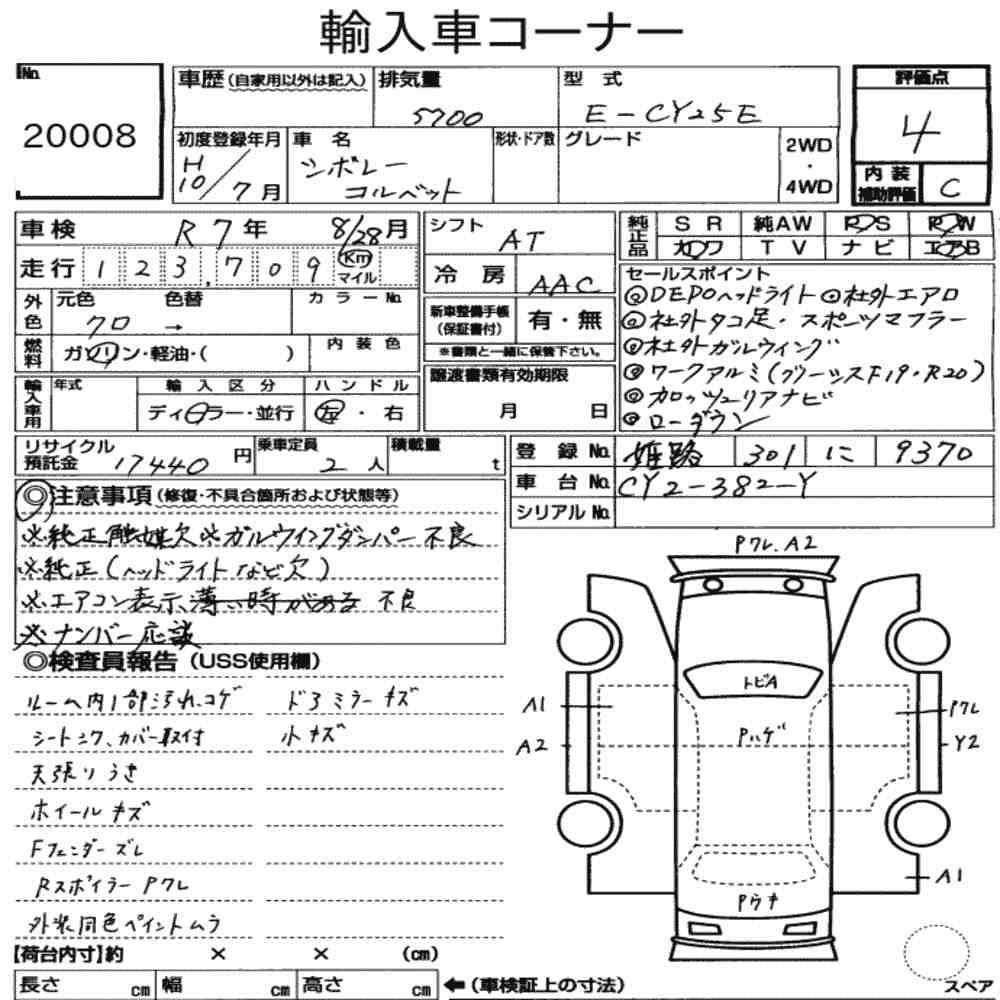 輸入車コーナー
No. 20008
車歴 (自家用以外は記入) 排気量 5700 型式 E-CY25E 評価点 4
初度登録年月 H10/7月 車名 シボレー コルベット 形状・ドア数 グレード 2WD・4WD 内装補助評価 C
車検 R7年 8/28月 シフト AT 純正品 SR 純AW PS PW
走行 123,709 Km マイル 冷房 AAC カワ TV ナビ エアB
外色 元色 クロ → 色替 カラーNo. 新車整備手帳(保証書付) 有・無
燃料 ガソリン・軽油・( ) 内装色 ※書類と一緒に保管下さい。
輸入車用 年式 輸入区分 ディーラー・並行 ハンドル 左・右 譲渡書類有効期限 月 日
セールスポイント
◎DEPOヘッドライト ◎社外エアロ
◎社外タコ足・スポーツマフラー
◎社外ガルウィング
◎ワークアルミ(グノーシスF19・R20)
◎カロッツェリアナビ
◎ローダウン
リサイクル預託金 17440円 乗車定員 2人 積載量 t 登録No. 姫路 301 に 9370
車台No. CY2-382-Y
シリアルNo.
◎注意事項(修復・不具合箇所および状態等)
※純正触媒欠 ※ガルウイングダンパー不良
※純正(ヘッドライトなど欠)
※エアコン表示薄い時がある 不良
※ナンバー応談
◎検査員報告(USS使用欄)
ルーム内1部汚れ、コゲ ドアミラーキズ
シートシワ、カバー取付 小キズ
天張りうき
ホイールキズ
Fフェンダーズレ
RスポイラーPワレ
外装同色ペイントムラ
Pワレ.A2
トビA
A1 Pワレ
A2 Pハゲ Y2
A1
Pウキ
【荷台内寸】約 × × (cm)
長さ cm 幅 cm 高さ cm ←(車検証上の寸法)
スペア